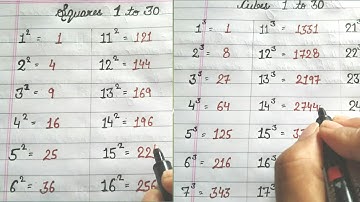 Squares 1 to 30
1² = 1 11² = 121
2² = 4 12² = 144
3² = 9 13² = 169
4² = 16 14² = 196
5² = 25 15² = 22
6² = 36 16² = 256
Cubes 1 to 30
1³ = 1 11³ = 1331 21³
2³ = 8 12³ = 1728 22³
3³ = 27 13³ = 2197 23³
4³ = 64 14³ = 2744
5³ = 125 15³ =
6³ = 216 16³
7³ = 343 17³